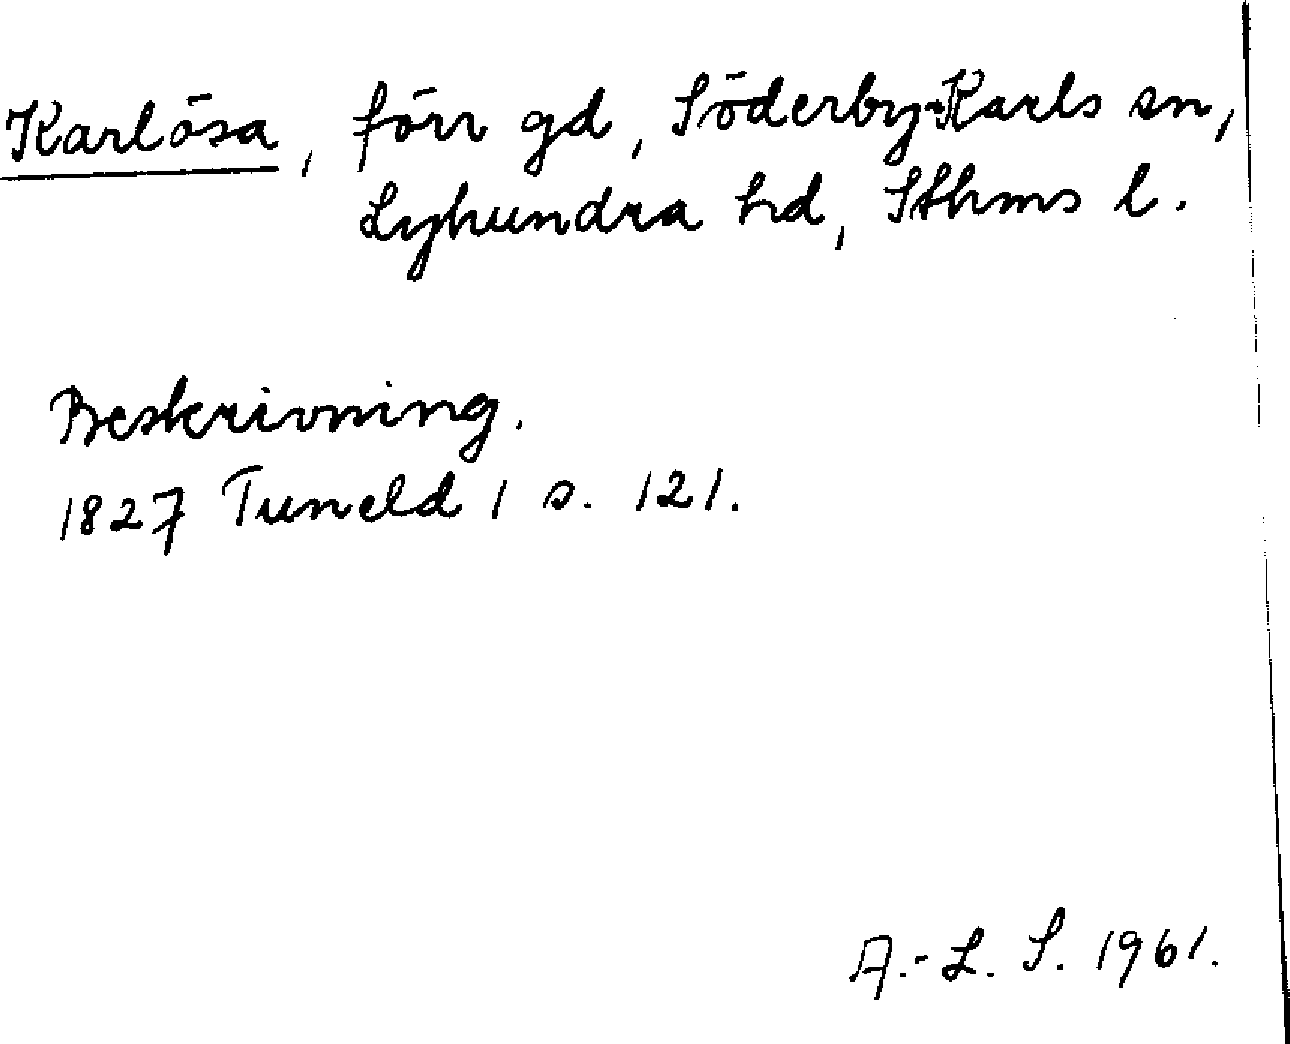 Karlösa, förr gd, Söderby-Karls sn,
Lyhundra hd, Sthms l.
Beskrivning.
1827 Tuneld 1 s. 121.
A.-L. S. 1961.